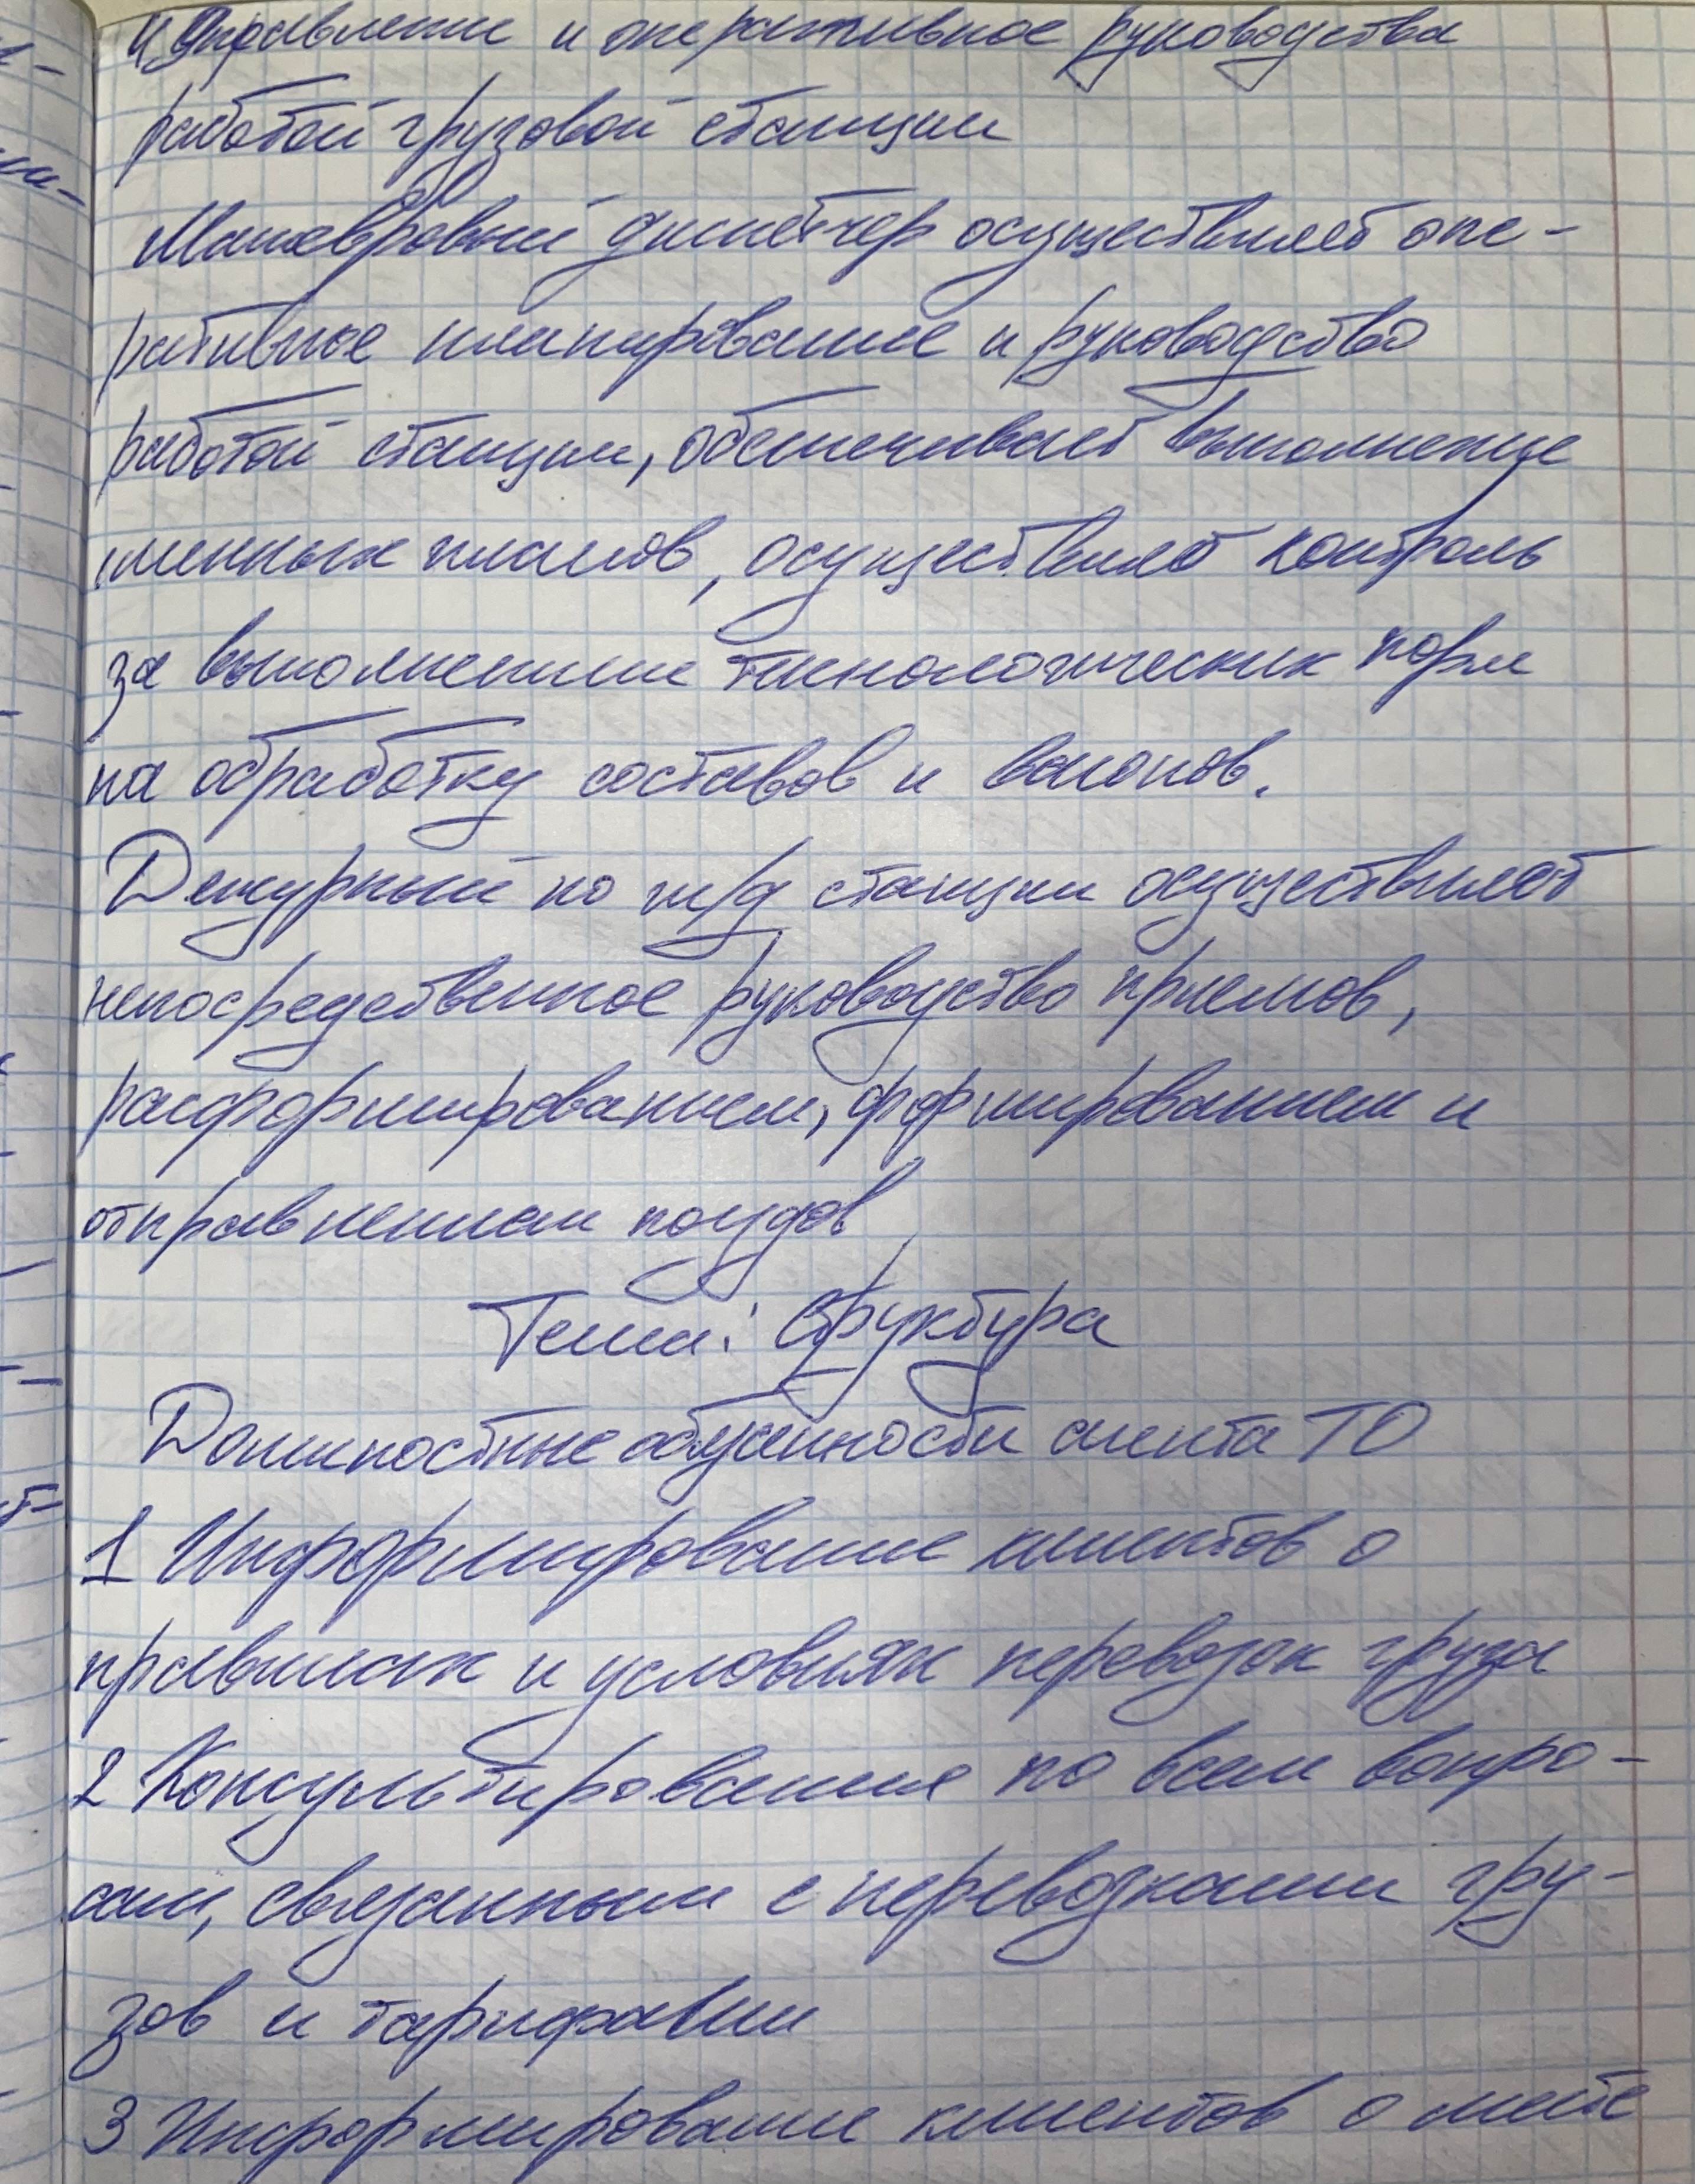 Управление и оперативное руководства
работой грузовой станции
Маневровый диспетчер осуществляет опе-
ративное планирование и руководство
работой станции, обеспечивает выполнение
сменных планов, осуществляет контроль
за выполнением технологических норм
на обработку составов и вагонов.
Дежурный по ж/д станции осуществляет
непосредственное руководство приемов,
расформированием, формированием и
отправлением поездов
Тема: Структура
Должностные обязанности агента ТО
1 Информирование клиентов о
правилах и условиях перевозок груза
2 Консультирования по всем вопро-
сам, связанным с перевозками гру-
зов и тарифами
3 Информирование клиентов о месте